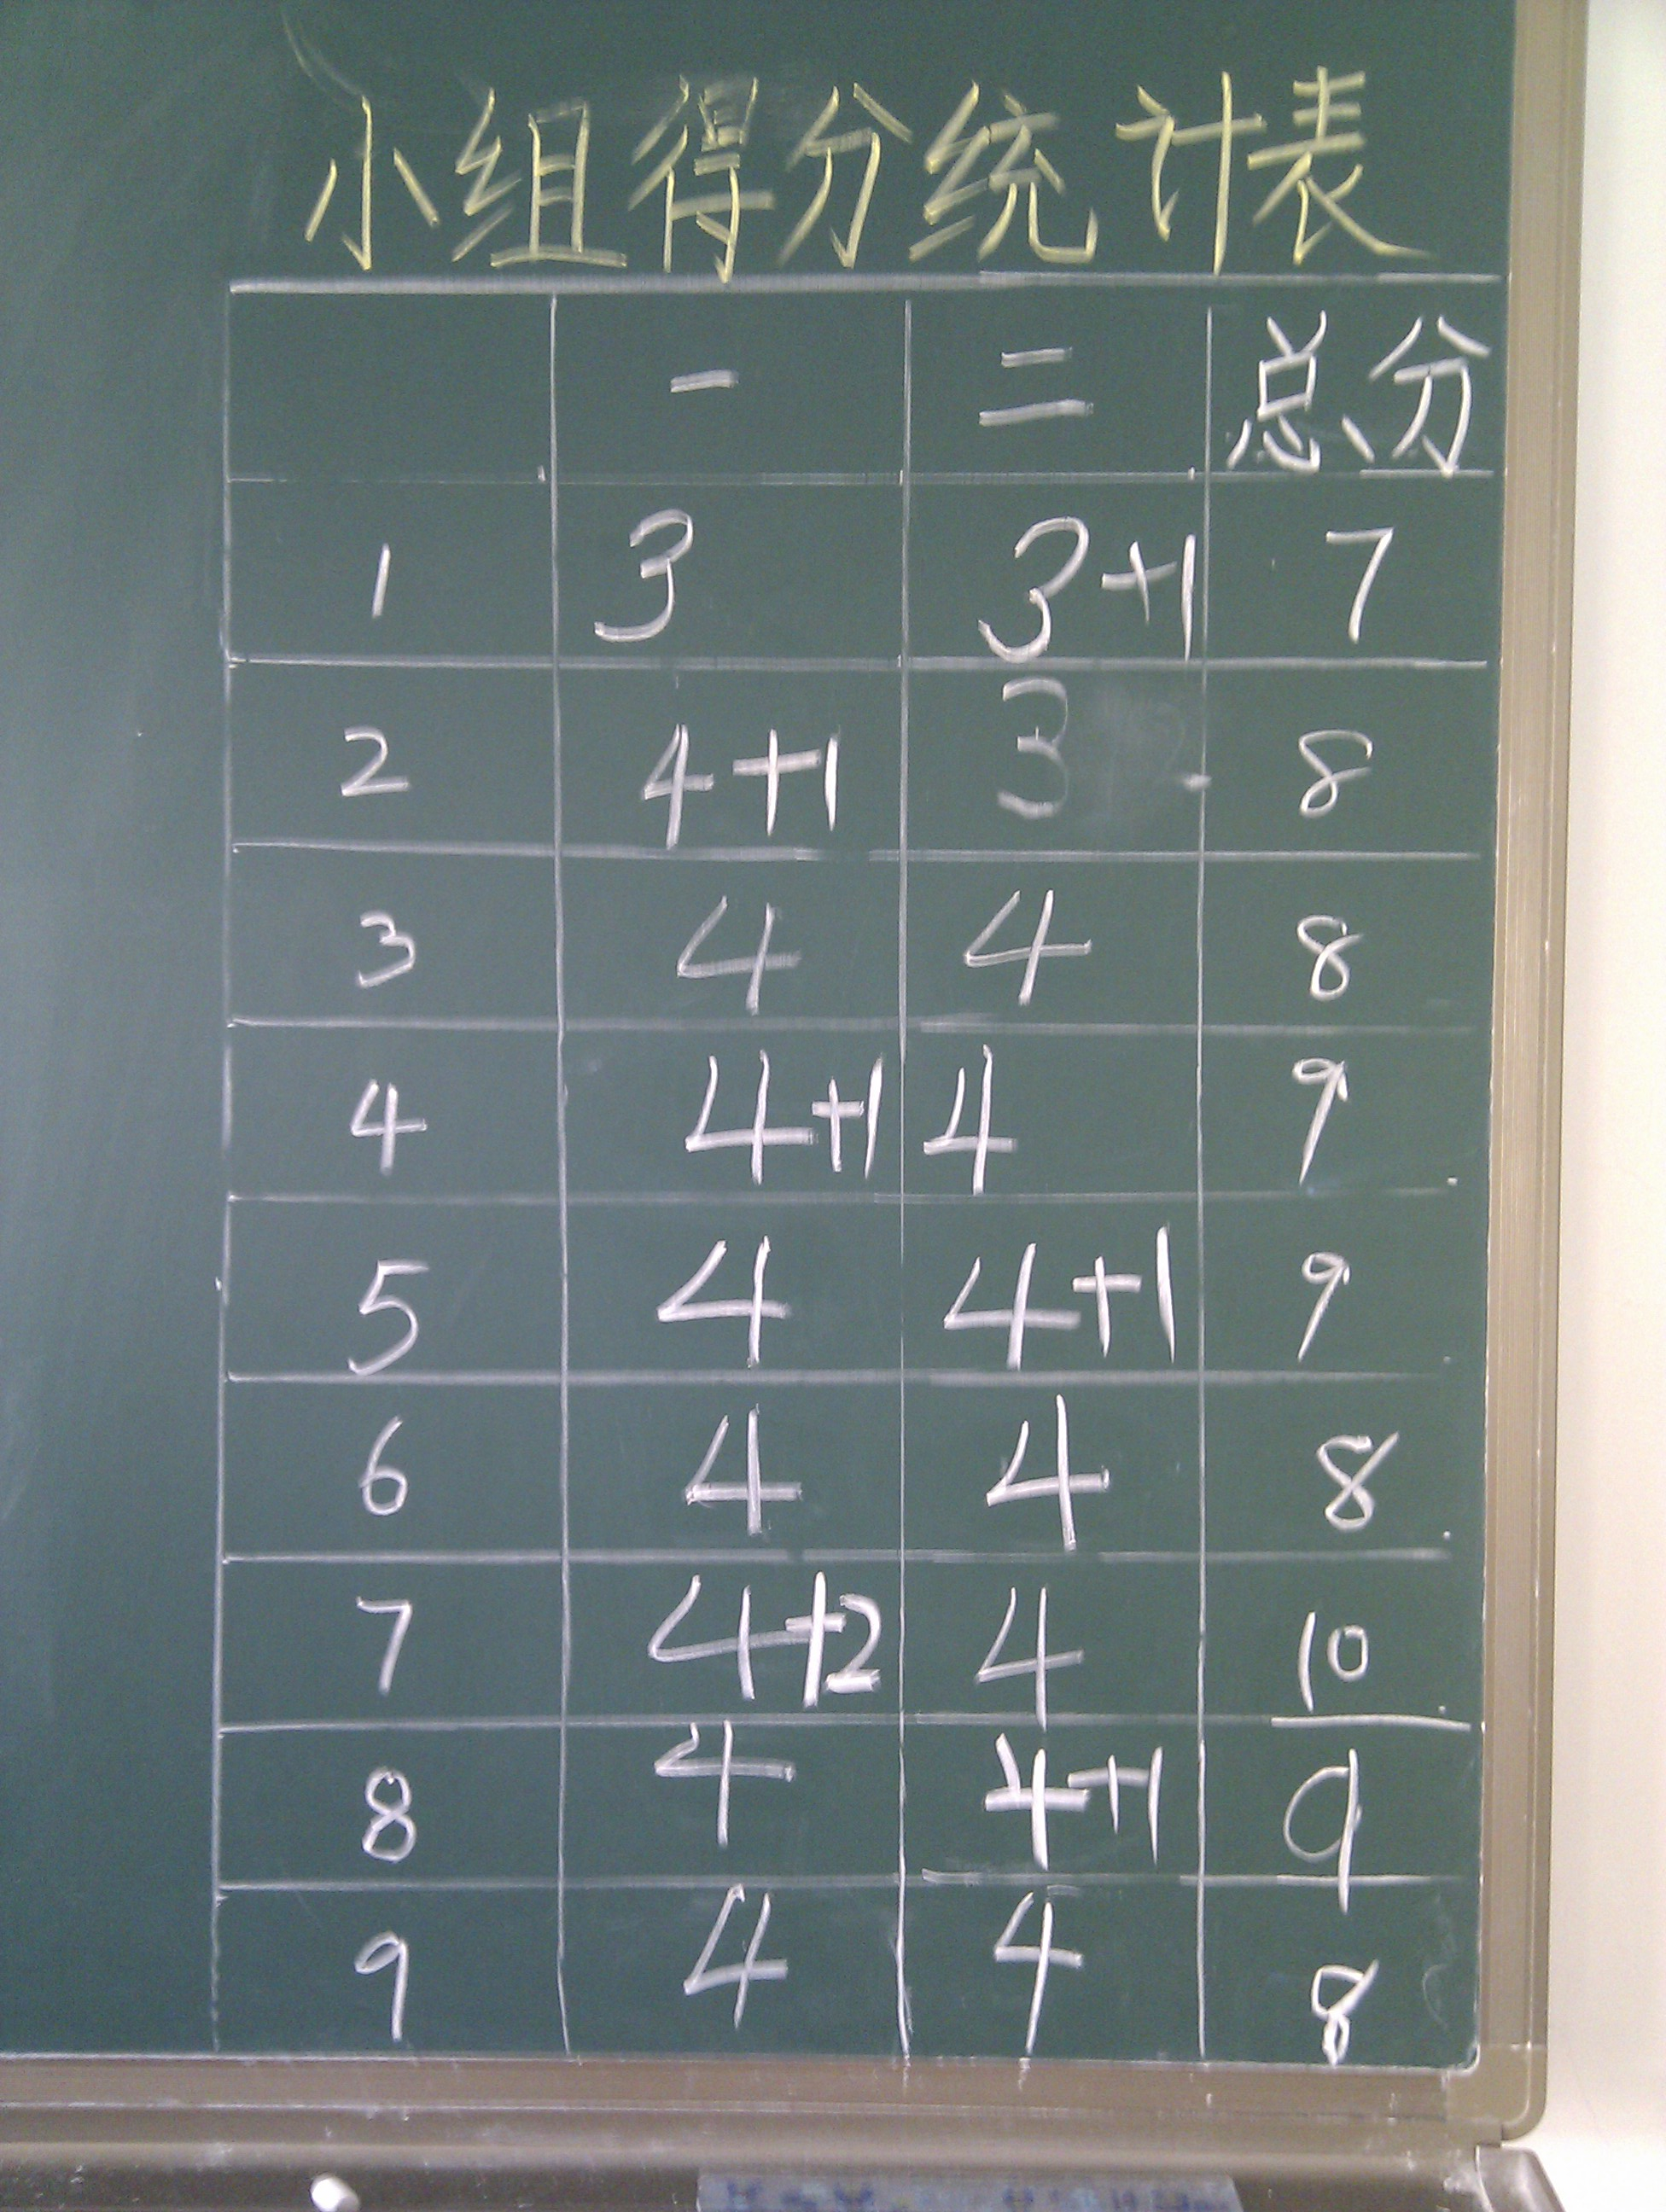 小组得分统计表
一 二 总分
1 3 3+1 7
2 4+1 3 8
3 4 4 8
4 4+1 4 9
5 4 4+1 9
6 4 4 8
7 4+2 4 10
8 4 4+1 9
9 4 4 8